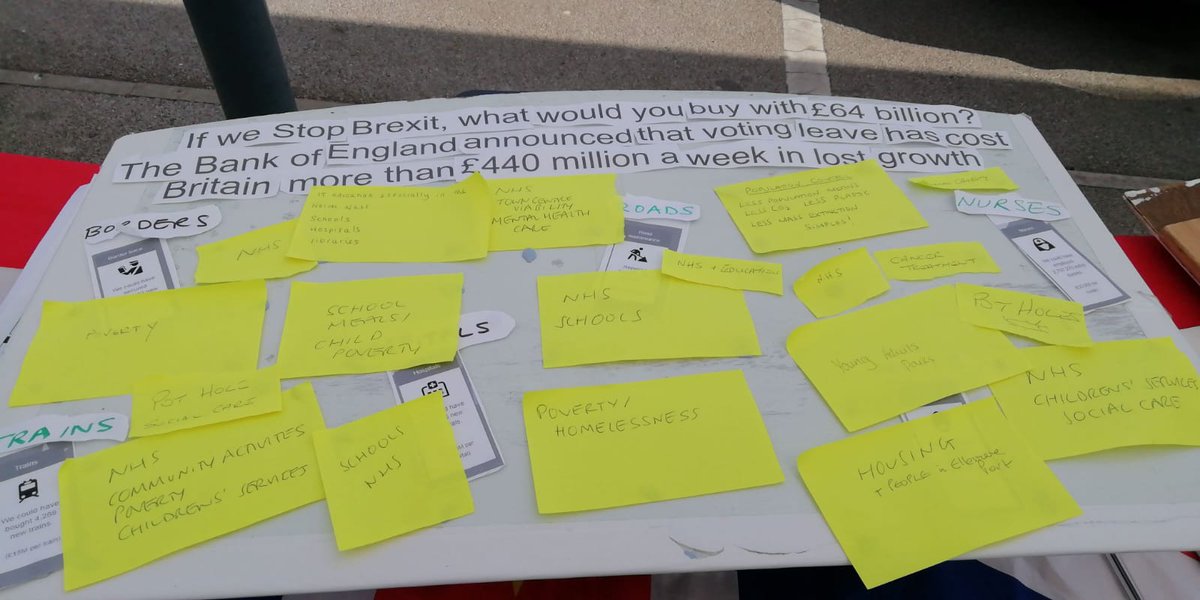 If we Stop Brexit, what would you buy with £64 billion?
The Bank of England announced that voting leave has cost
Britain more than £440 million a week in lost growth
BORDERS
NHS
Schools
Hospitals
libraries
NHS
TOWN CENTRE
VIABILITY
MENTAL HEALTH
CARE
ROADS
POPULATION CONTROL
LESS POPULATION MEANS
LESS CO2 LESS PLASTIC
LESS MASS EXTINCTION
SIMPLES!
NURSES
We could have
NHS + EDUCATION
NHS
CANCER
TREATMENT
POT HOLES
POVERTY
SCHOOL
MEALS/
CHILD
POVERTY
NHS
SCHOOLS
Young Adults
NHS
CHILDREN'S SERVICES
SOCIAL CARE
POT HOLE
SOCIAL CARE
Hospitals
TRAINS
Trains
We could have
bought 4,266
new trains.
(£15M per train)
NHS
COMMUNITY ACTIVITES
POVERTY
CHILDRENS' SERVICES
SCHOOLS
NHS
POVERTY/
HOMELESSNESS
HOUSING
+ PEOPLE in Ellesmere
Port